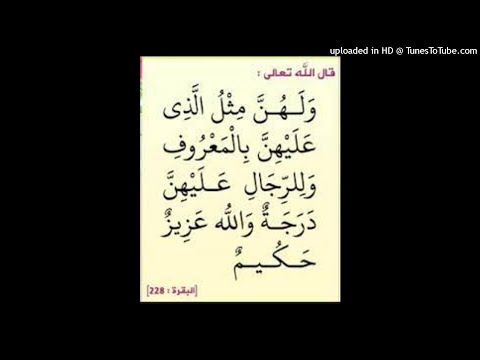 uploaded in HD @ TunesToTube.com
قال اللّٰه تعالى :
وَلَـهُـنَّ مِثْلُ الَّذِى
عَلَيْهِنَّ بِالْمَعْرُوفِ
وَلِلرِّجَالِ عَـلَيْهِنَّ
دَرَجَـةٌ وَاللّٰه عَزِيزٌ
حَـكُـيـمٌ
[البقرة : 228]